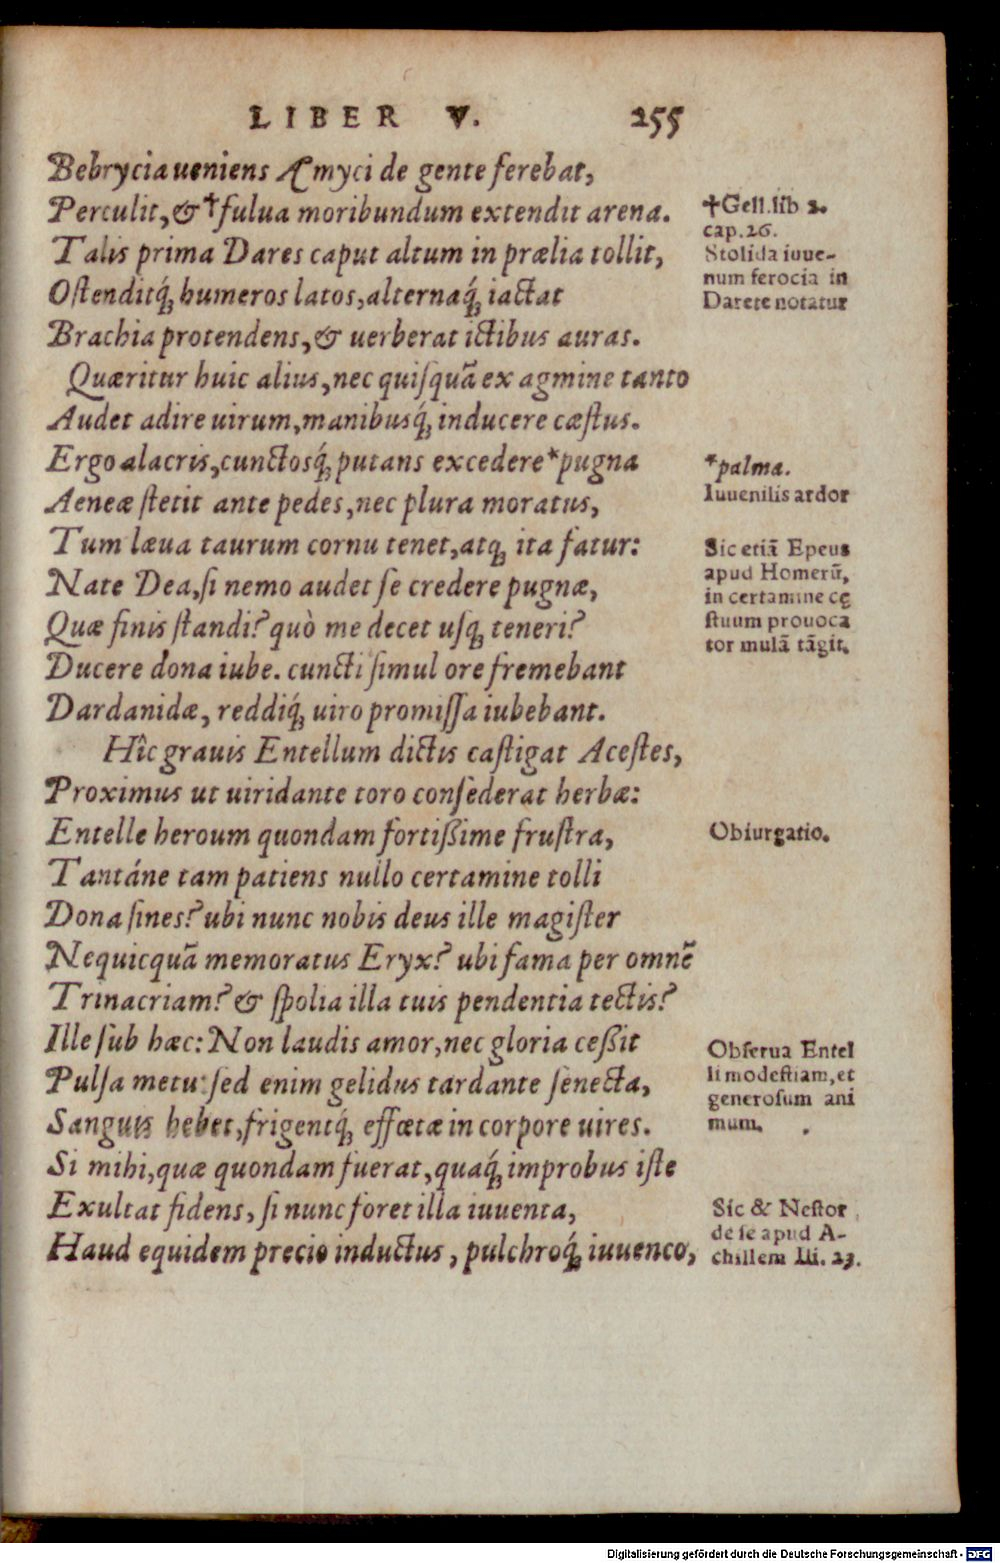 LIBER V. 255
Bebrycia ueniens Amyci de gente ferebat,
Perculit, & †fulua moribundum extendit arena.
Talis prima Dares caput altum in prælia tollit,
Ostenditq́; humeros latos, alternaq́; iactat
Brachia protendens, & uerberat ictibus auras.
Quæritur huic alius, nec quisquã ex agmine tanto
Audet adire uirum, manibusq́; inducere cæstus.
Ergo alacris, cunctosq́; putans excedere *pugna
Aeneæ stetit ante pedes, nec plura moratus,
Tum læua taurum cornu tenet, atq; ita fatur:
Nate Dea, si nemo audet se credere pugnæ,
Quæ finis standi? quò me decet usq; teneri?
Ducere dona iube. cuncti simul ore fremebant
Dardanidæ, reddiq́; uiro promissa iubebant.
Hîc grauis Entellum dictis castigat Acestes,
Proximus ut uiridante toro consederat herbæ:
Entelle heroum quondam fortissime frustra,
Tantáne tam patiens nullo certamine tolli
Dona sines? ubi nunc nobis deus ille magister
Nequicquã memoratus Eryx? ubi fama per omnẽ
Trinacriam? & spolia illa tuis pendentia tectis?
Ille sub hæc: Non laudis amor, nec gloria cessit
Pulsa metu: sed enim gelidus tardante senecta,
Sanguis hebet, frigentq́; effœtæ in corpore uires.
Si mihi, quæ quondam fuerat, quaq́; improbus iste
Exultat fidens, si nunc foret illa iuuenta,
Haud equidem precio inductus, pulchroq́; iuuenco,
†Gell. lib 2.
cap. 26.
Stolida iuue-
num ferocia in
Darete notatur
*palma.
Iuuenilis ardor
Sic etiã Epeus
apud Homerũ,
in certamine cę
stuum prouoca
tor mulã tãgit.
Obiurgatio.
Obserua Entel
li modestiam, et
generosum ani
mum.
Sic & Nestor
de se apud A-
chillem Ili. 23.
Digitalisierung gefördert durch die Deutsche Forschungsgemeinschaft - DFG